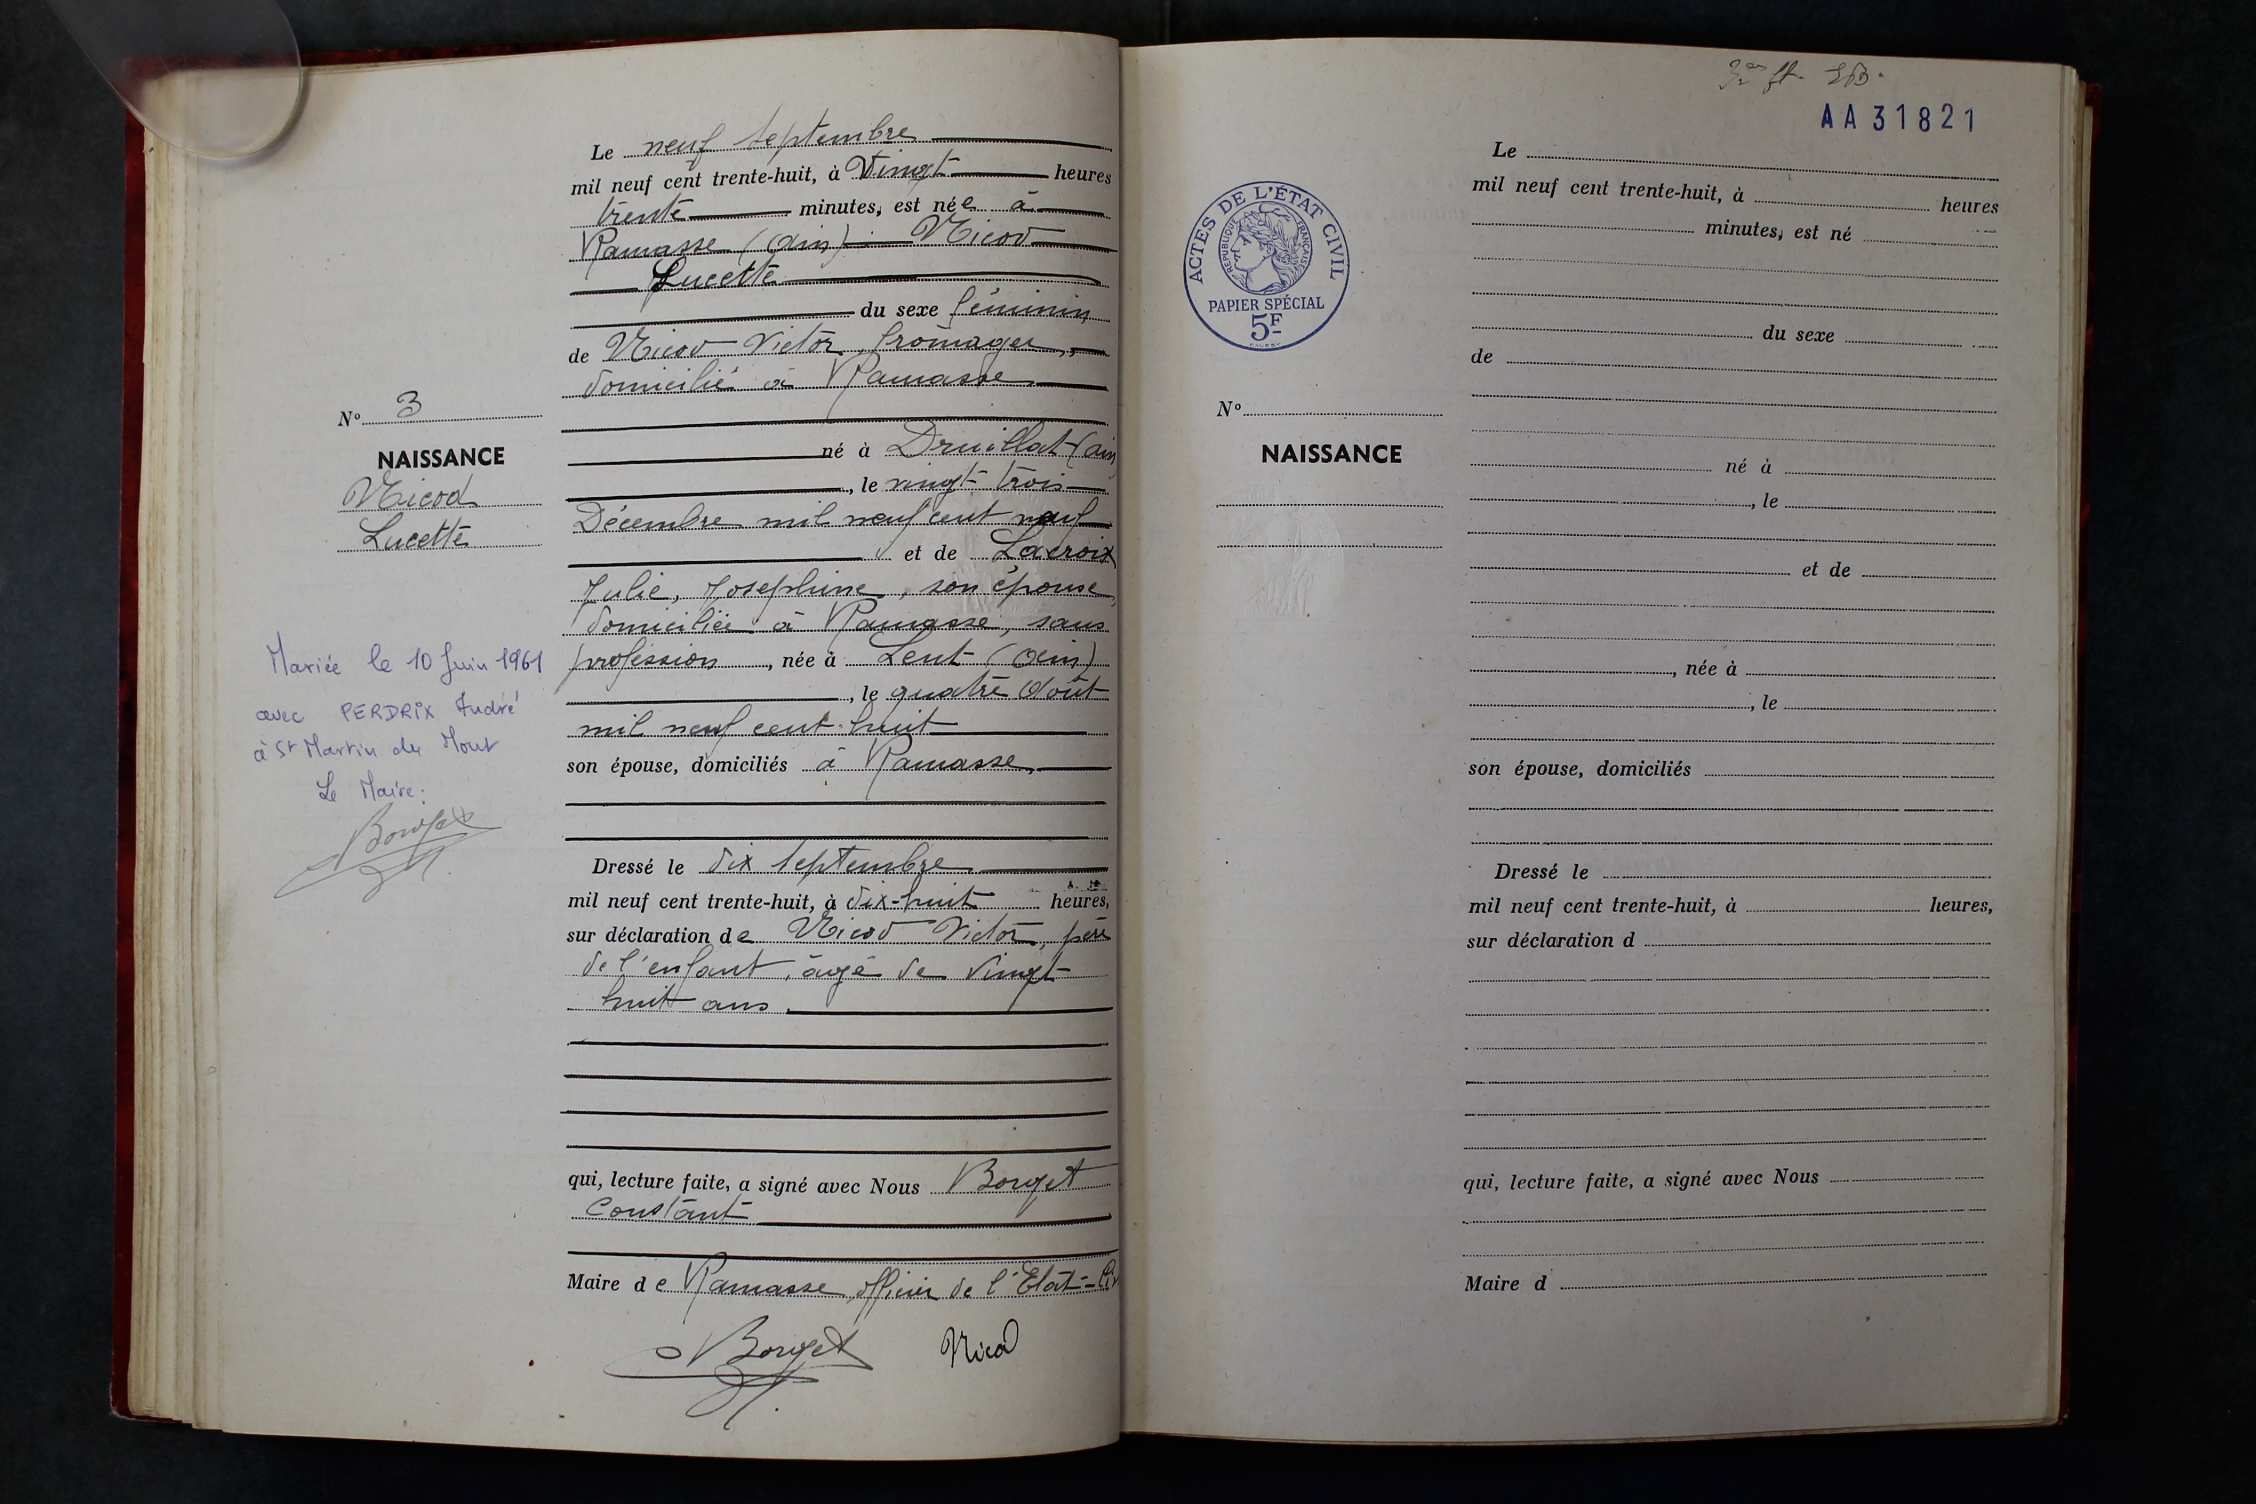 Le neuf Septembre
mil neuf cent trente-huit, à Vingt heures
trente minutes, est née à
Ramasse (Ain) Nicod
Lucette
du sexe féminin
de Nicod Victor, fromager,
domicilié à Ramasse
né à Druillat (Ain
, le vingt trois
Décembre mil neuf cent neuf
et de Lacroix
Julie, Josephine, son épouse,
domiciliée à Ramasse, sans
profession, née à Lent (Ain)
, le quatre Août
mil neuf cent huit
son épouse, domiciliés à Ramasse
Dressé le dix Septembre
mil neuf cent trente-huit, à dix-huit heures,
sur déclaration de Nicod Victor, père
de l'enfant, âgé de vingt
huit ans
qui, lecture faite, a signé avec Nous Borget
Constant
Maire de Ramasse officier de l'Etat-Civ
Borget Nicod
No 3
NAISSANCE
Nicod
Lucette
Mariée le 10 Juin 1961
avec PERDRIX André
à St Martin du Mont
Le Maire:
Borget
AA31821
ACTES DE L'ÉTAT CIVIL
RÉPUBLIQUE FRANÇAISE
PAPIER SPÉCIAL
5F
No
NAISSANCE
Le
mil neuf cent trente-huit, à heures
minutes, est né
du sexe
de
né à
, le
et de
, née à
, le
son épouse, domiciliés
Dressé le
mil neuf cent trente-huit, à heures,
sur déclaration d
qui, lecture faite, a signé avec Nous
Maire d